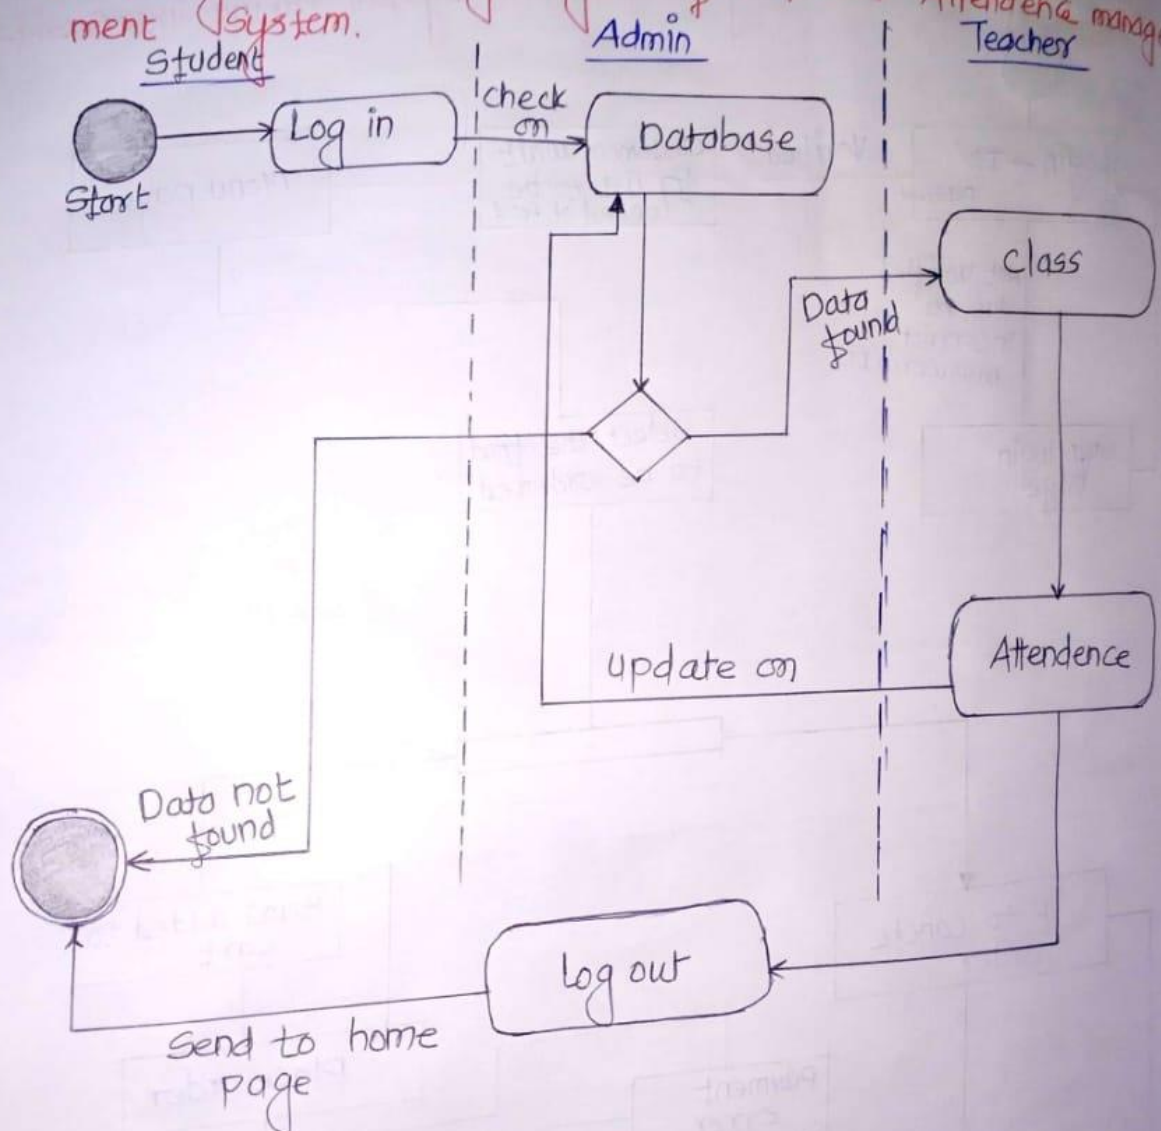 Attendence manag
ment System.
Student
Admin
Teacher
Start
Log in
check
on
Database
Class
Data
found
Attendence
update on
Data not
found
Log out
Send to home
page